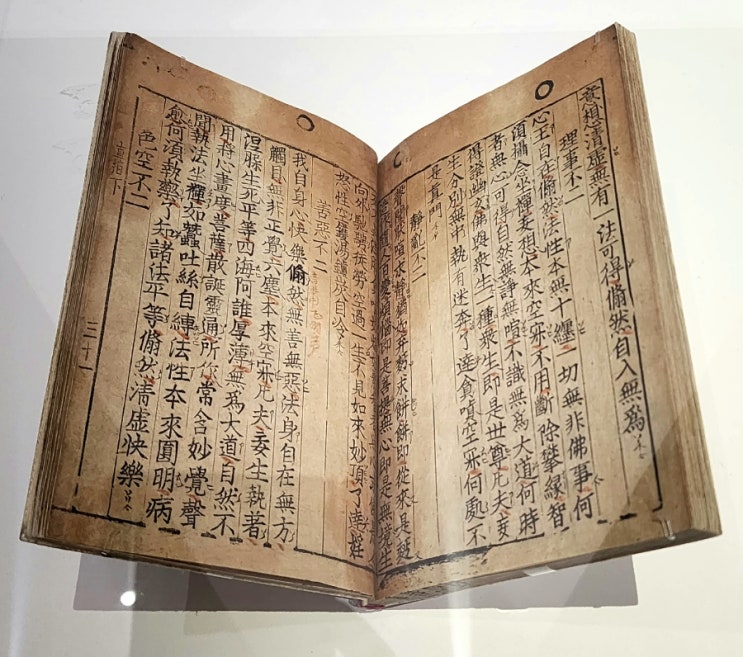 意想清虛無有一法可得翛然自入無爲
理事不二
心王自在翛然法性本無十纏一切無非佛事何
須攝念坐禪妄想本來空寂不用斷除攀緣智
者無心可得自然無諍無喧不識無爲大道何時
得證幽玄佛與衆生一種衆生即是世尊凡夫妄
生分別無中執有迷奔了達貪嗔空寂何處不
是眞門
靜亂不二
聲聞厭喧求靜猶如弃麪求餅餅即從來是麪
人百變煩惱即是菩提無心即是無境生
向外馳騁狂勞空過一生不見如來妙頂了達婬
慾性空鑊湯爐炭自冷
善惡不二
我自身心快樂翛然無善無惡法身自在無方
觸目無非正覺六塵本來空寂凡夫妄生執著
涅槃生死平等四海阿誰厚薄無爲大道自然不
用將心畫度菩薩散誕靈通所作常含妙覺聲
聞執法坐禪如蠶吐絲自縛法性本來圓明病
愈何須執藥了知諸法平等翛然清虛快樂
色空不二
直指下
三十一